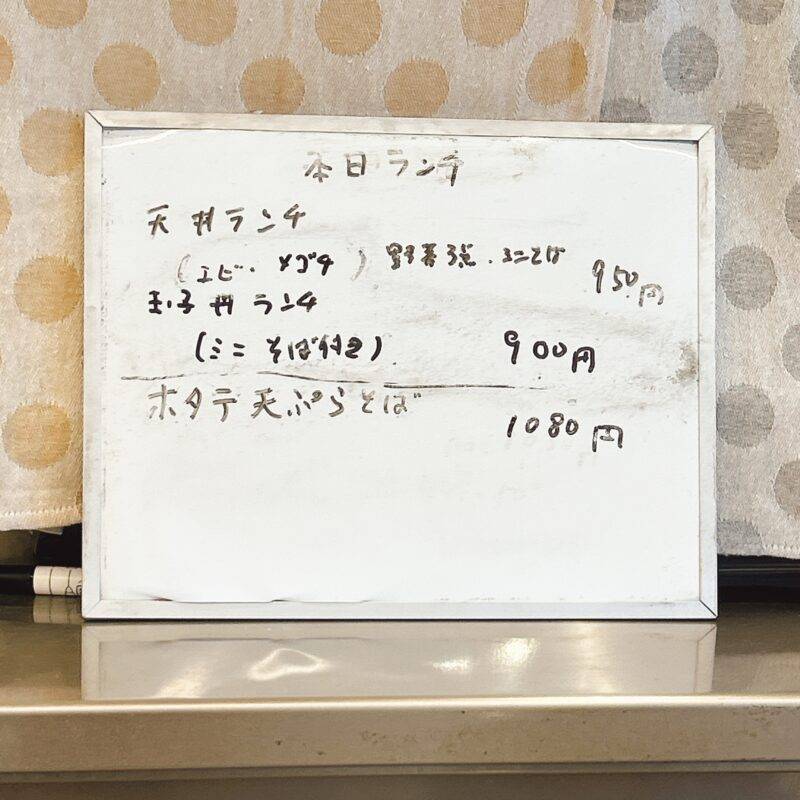 本日ランチ
天丼ランチ
(エビ・メゴチ) 野菜3点・ミニそば 950円
玉子丼ランチ
(ミニそば付き) 900円
ホタテ天ぷらそば 1080円